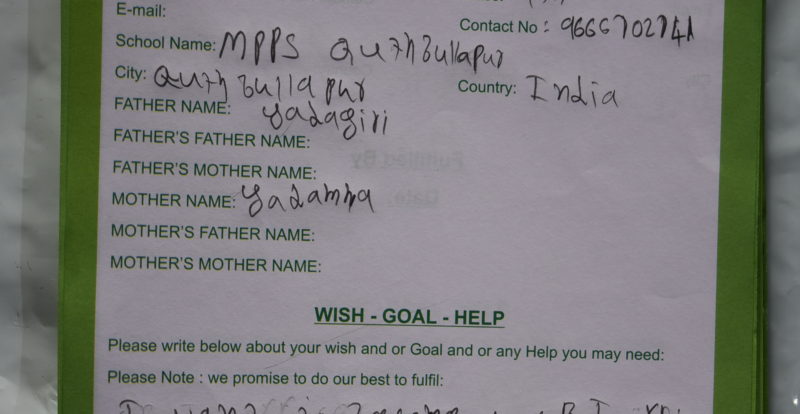 E-mail:
Contact No : 9666702741
School Name: MPPS Quthbullapur
City: Quthbullapur Country: India
FATHER NAME: yadagiri
FATHER'S FATHER NAME:
FATHER'S MOTHER NAME:
MOTHER NAME: yadamma
MOTHER'S FATHER NAME:
MOTHER'S MOTHER NAME:
WISH - GOAL - HELP
Please write below about your wish and or Goal and or any Help you may need:
Please Note : we promise to do our best to fulfil: